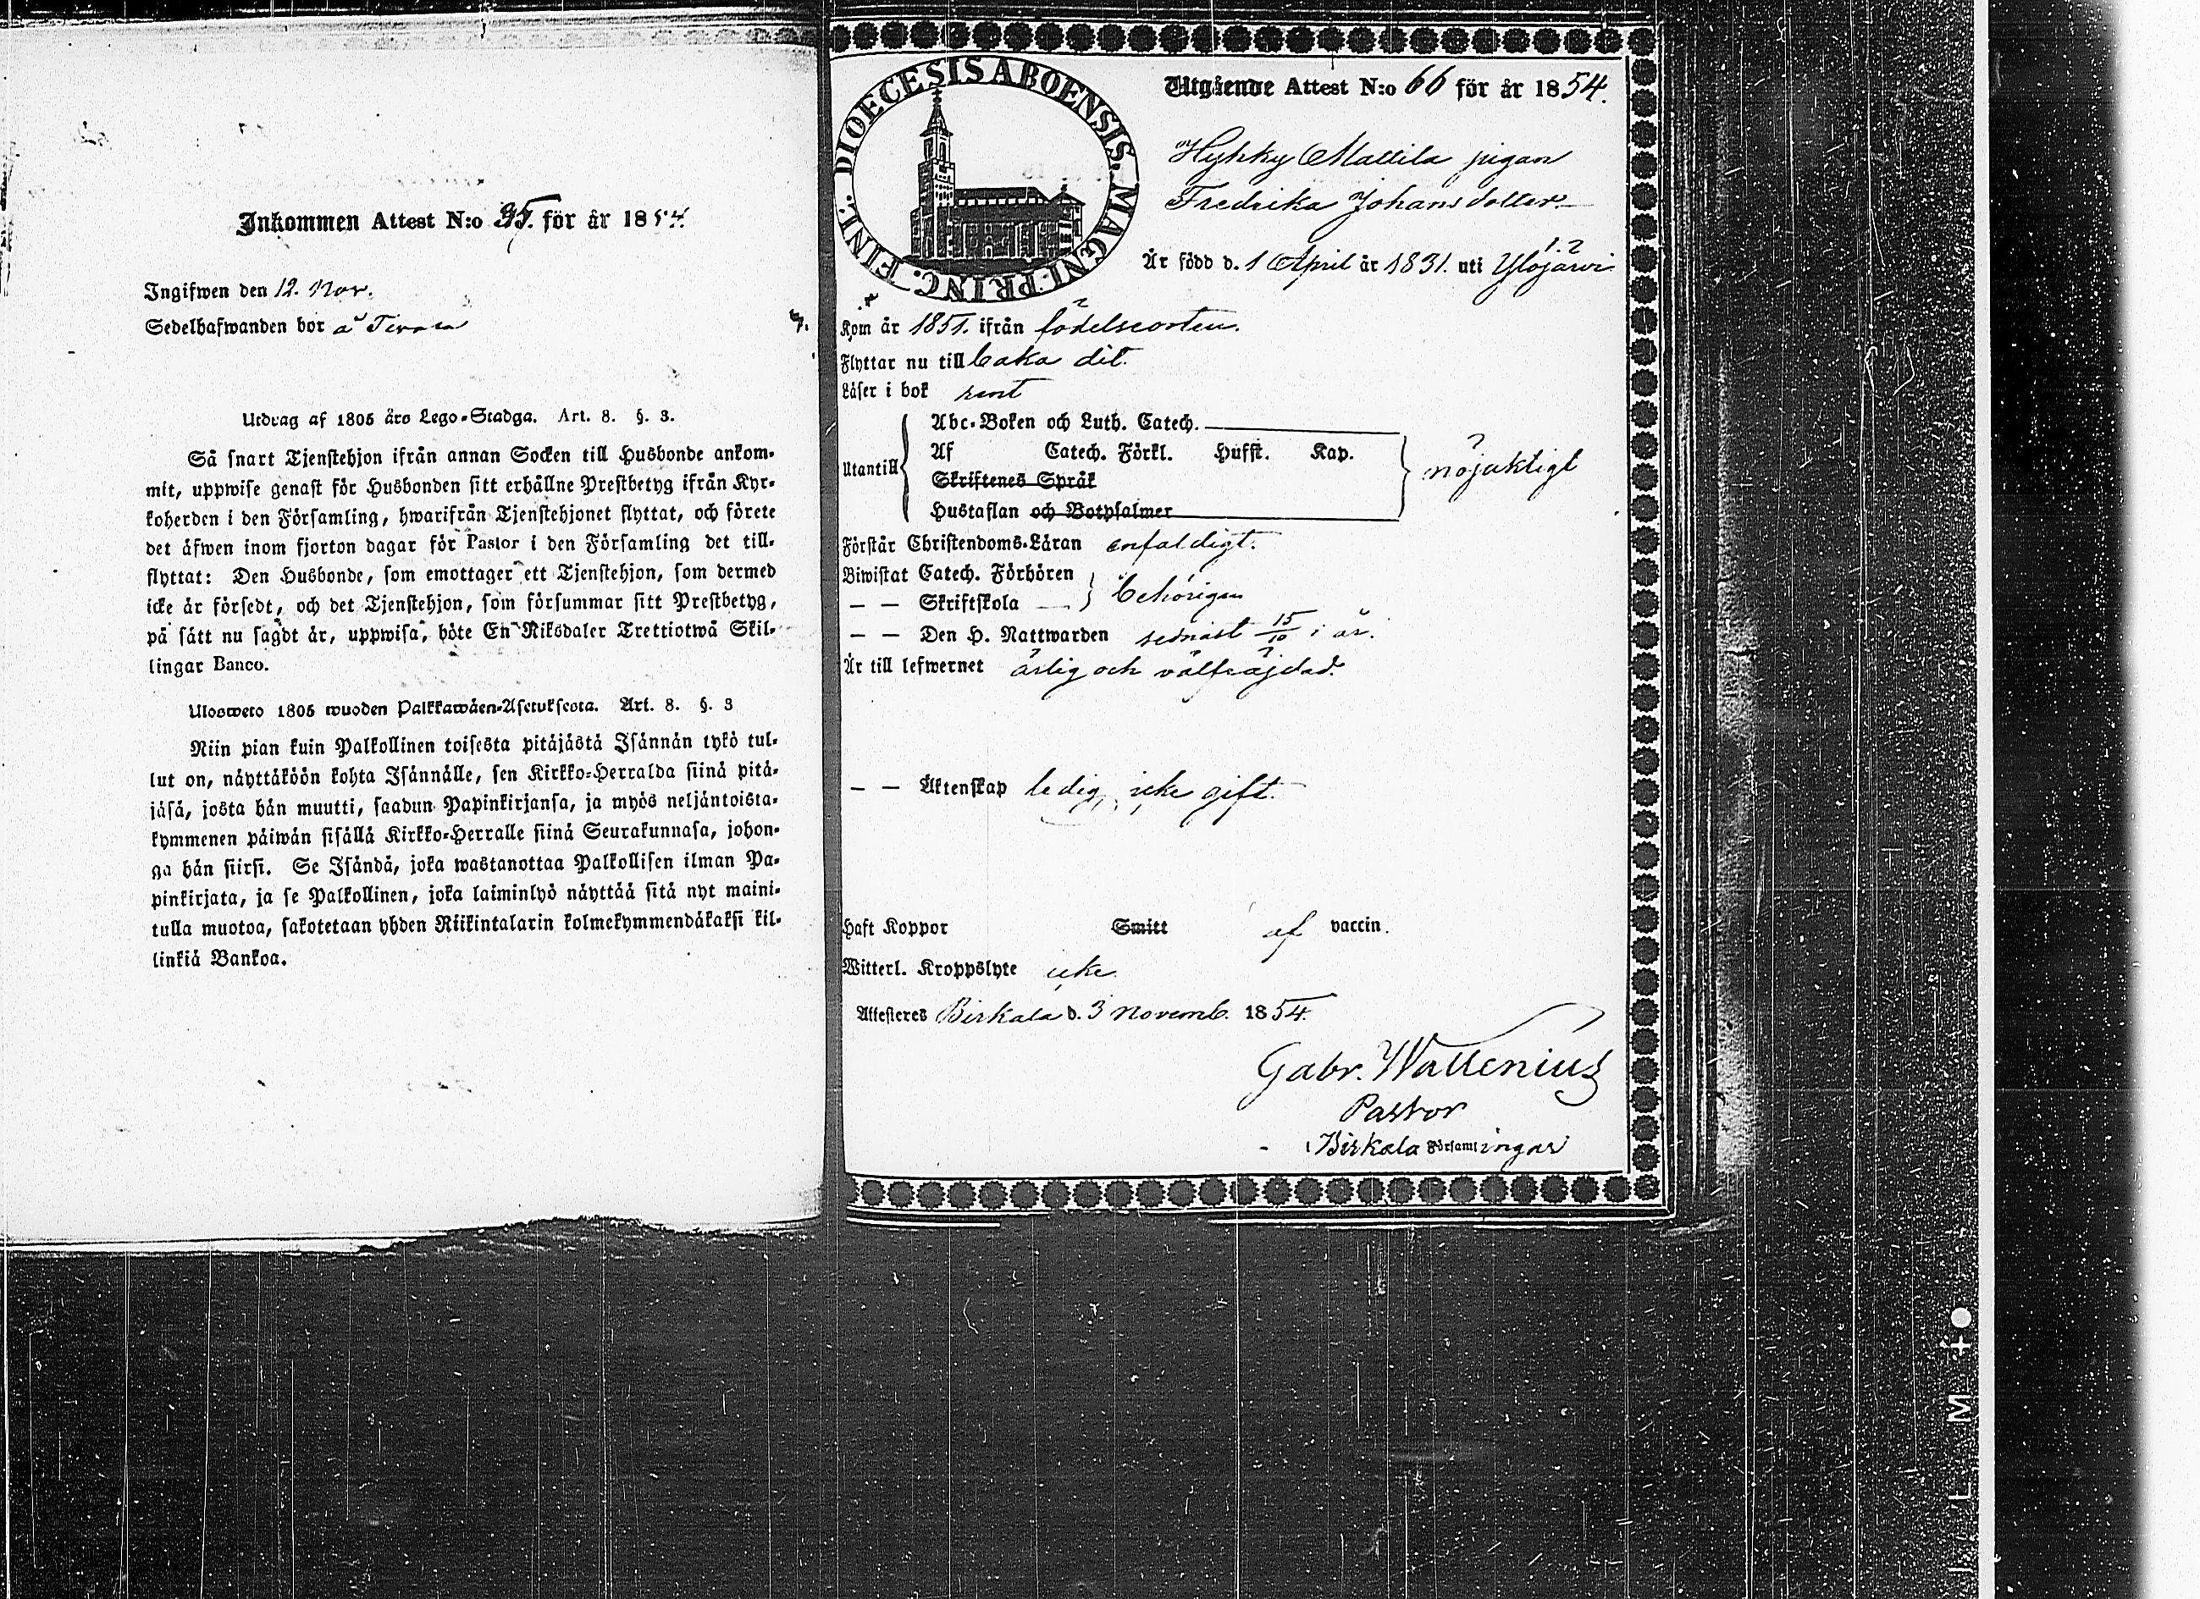 Inkommen Attest N:o 95. för år 1854.
Ingifwen den 12. Nov.
Sedelhafwanden bor å
Utdrag af 1805 års Lego-Stadga. Art. 8. §. 3.
Så snart Tjenstehjon ifrån annan Socken till Husbonde ankom-
mit, uppwise genast för Husbonden sitt erhållne Prestbetyg ifrån Kyr-
koherden i den Församling, hwarifrån Tjenstehjonet flyttat, och förete
det äfwen inom fjorton dagar för Pastor i den Församling det till-
flyttat: Den Husbonde, som emottager ett Tjenstehjon, som dermed
icke är försedt, och det Tjenstehjon, som försummar sitt Prestbetyg,
på sätt nu sagdt är, uppwisa, böte En Riksdaler Trettiotwå Skil-
lingar Banco.
Ulosweto 1805 wuoden Palkkawäen-Asetuksesta. Art. 8. §. 3
Niin pian kuin Palkollinen toisesta pitäjästä Isännän tykö tul-
lut on, näyttäköön kohta Isännälle, sen Kirkko-Herralda siinä pitä-
jäsä, josta hän muutti, saadun Papinkirjansa, ja myös neljäntoista-
kymmenen päiwän sisällä Kirkko-Herralle siinä Seurakunnasa, johon-
ga hän siirsi. Se Isändä, joka wastanottaa Palkollisen ilman Pa-
pinkirjata, ja se Palkollinen, joka laiminlyö näyttää sitä nyt maini-
tulla muotoa, sakotetaan yhden Riikintalarin kolmekymmendäkaksi kil-
linkiä Bankoa.
DIOECESIS ABOENSIS. MAGNI. PRINC. FINL.
Utgående Attest N:o 66 för år 1854.
Hyhky Mattila pigan
Fredrika Johansdotter
Är född d. 1 April år 1831. uti Ylöjärvi
Kom år 1851. ifrån födelseorten.
Flyttar nu tillbaka dit.
Läser i bok rent
Abc-Boken och Luth. Catech.
Utantill
Af Catech. Förkl. Husst. Kap.
nöjaktigt
Skriftenes Språk
Hustaflan och Botpsalmer
Förstår Christendoms-Läran enfaldigt.
Biwistat Catech. Förhören
— — Skriftskola — behörigen
— — Den H. Nattwarden sednast 15/10 i år.
Är till lefwernet ärlig och välfräjdad.
— — Äktenskap ledig, icke gift.
Haft Koppor Smitt af vaccin.
Witterl. Kroppslyte icke.
Attesteres Birkala d. 3 Novemb. 1854.
Gabr. Wallenius
Pastor
i Birkala Församlingar